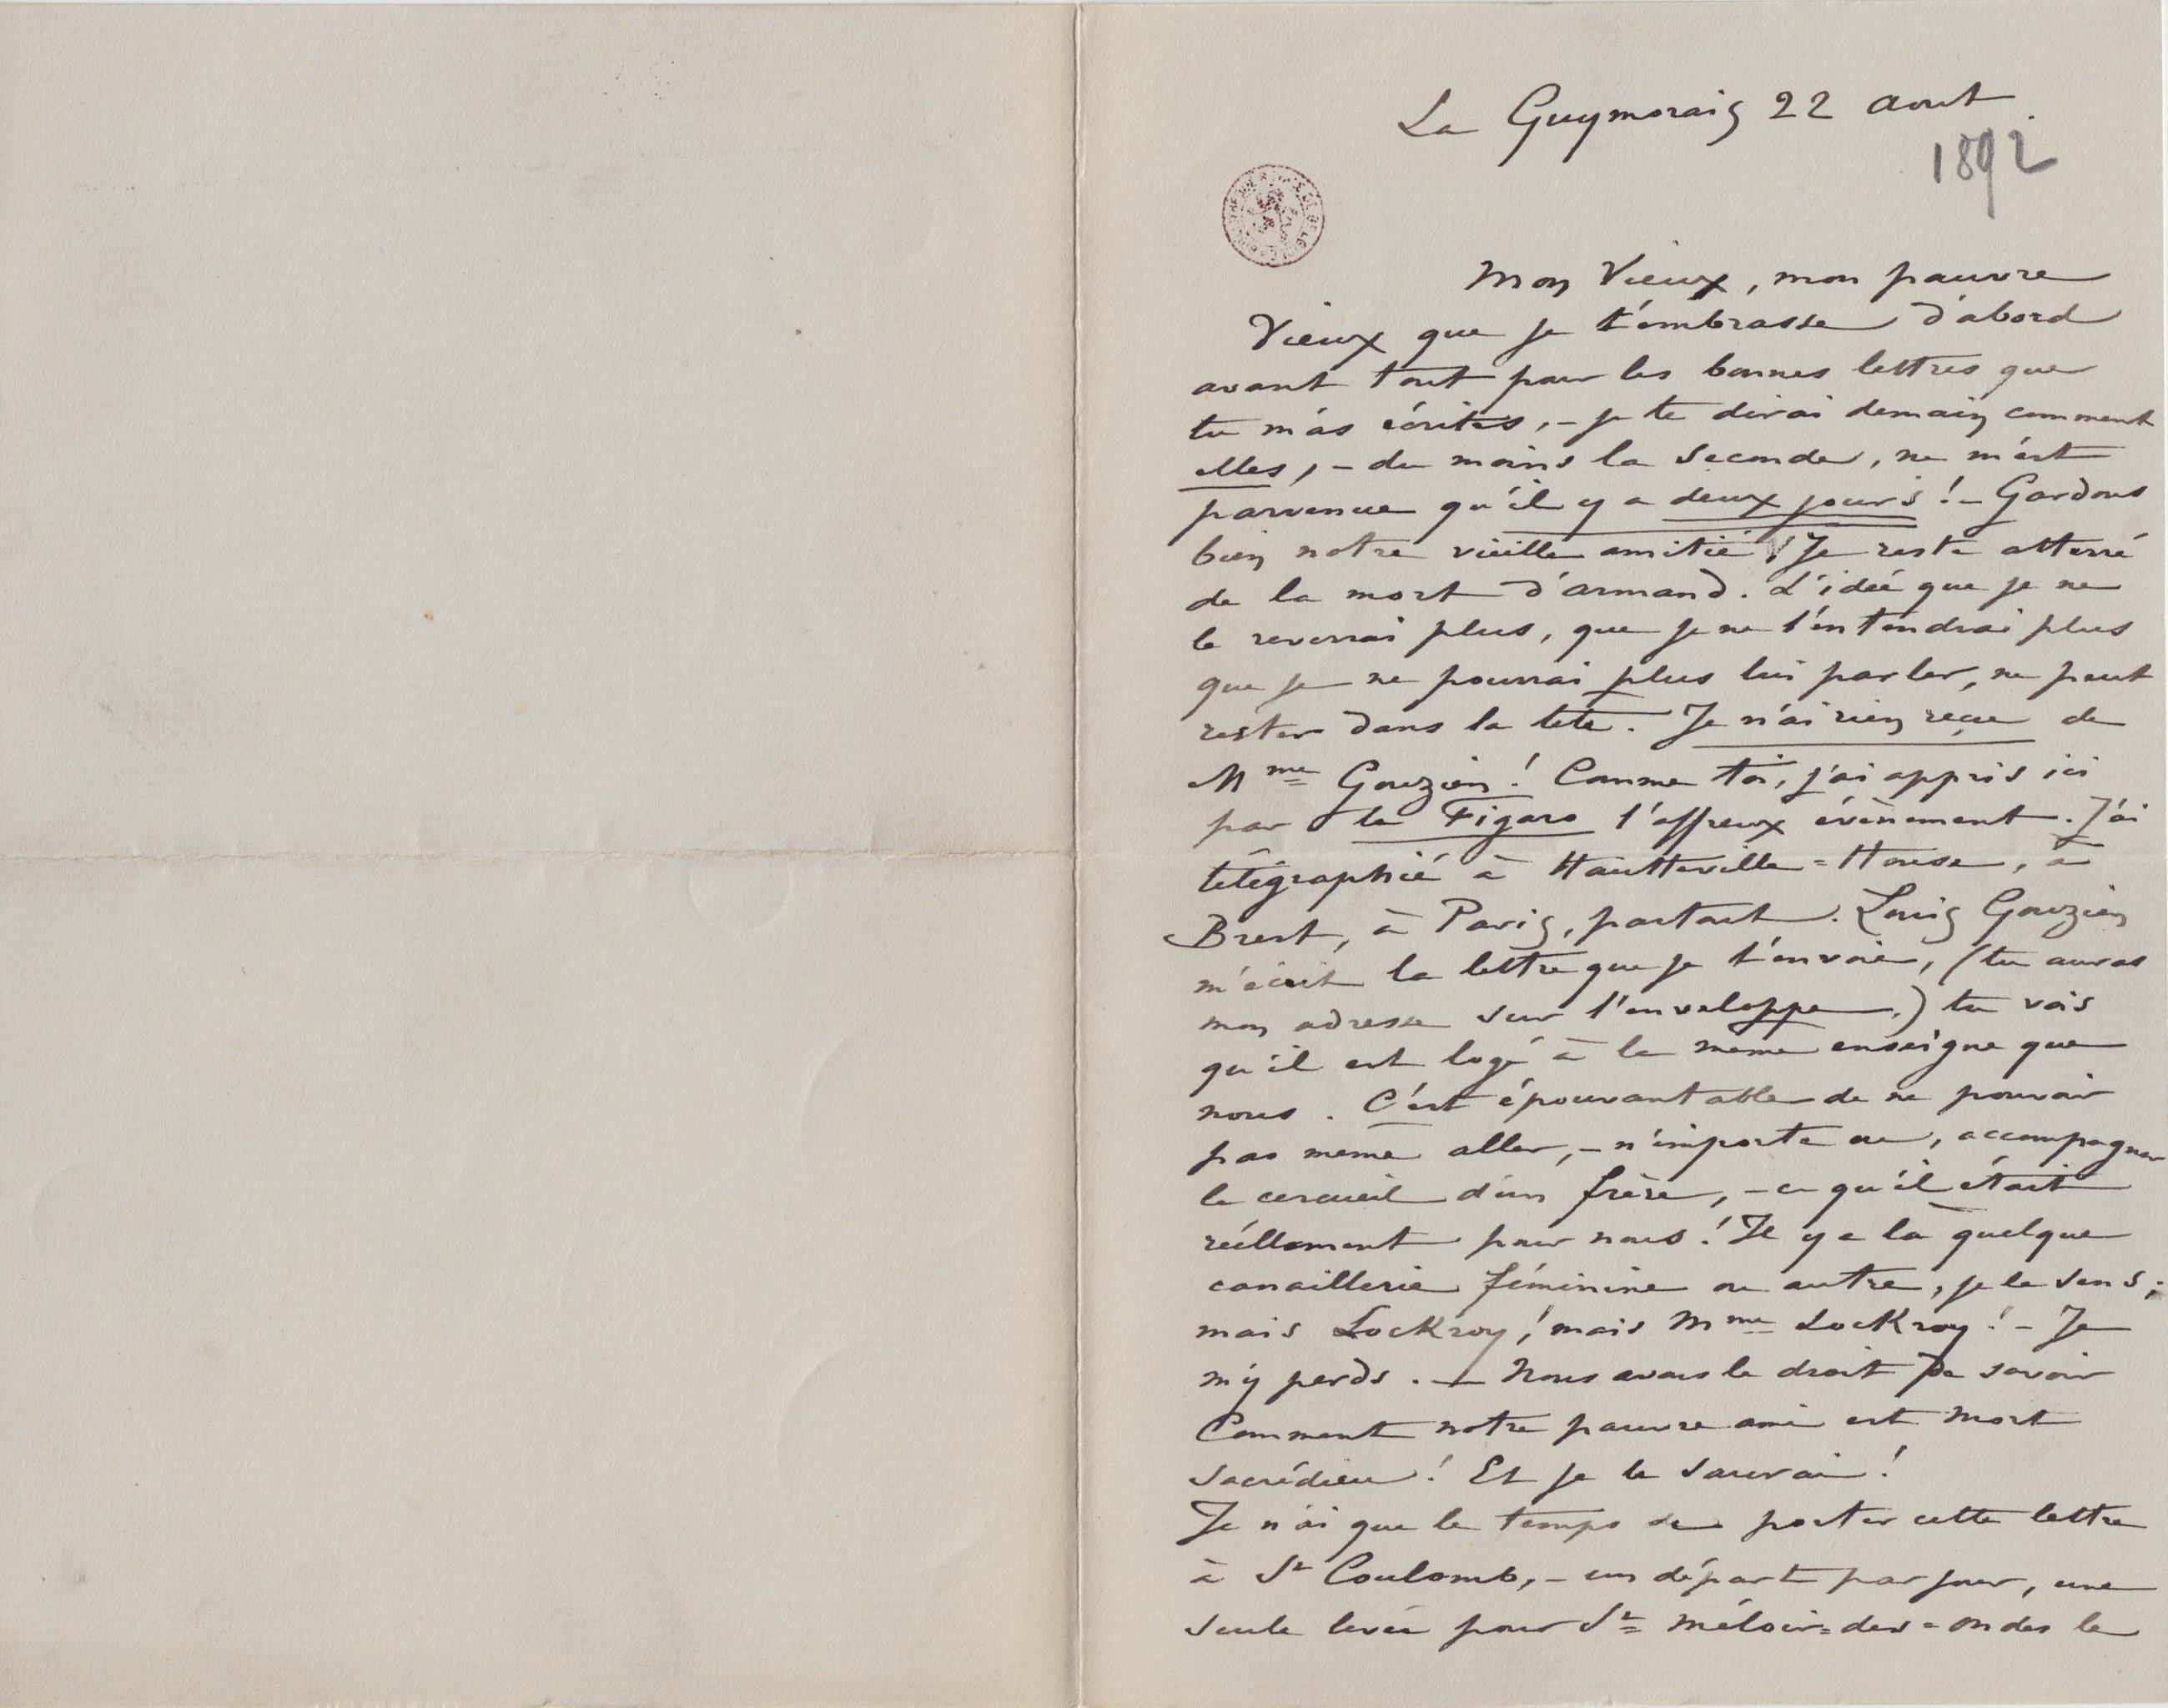 La Guymorais 22 aout
1892
Mon Vieux, mon pauvre
Vieux que je t'embrasse d'abord
avant tout pour les bonnes lettres que
tu m'as écrites, – je te dirai demain comment
elles, – du moins la seconde, ne m'est
parvenue qu'il y a deux jours ! – Gardons
bien notre vieille amitié ! Je reste atterré
de la mort d'Armand. L'idée que je ne
le reverrai plus, que je ne l'entendrai plus
que je ne pourrai plus lui parler, ne peut
rester dans la tete. Je n'ai rien reçu de
Mme Gouzien ! Comme toi, j'ai appris ici
par le Figaro l'affreux évènement. J'ai
télégraphié à Hautteville=House, à
Brest, à Paris, partout. Louis Gouzien
m'écrit la lettre que je t'envoie, (tu auras
mon adresse sur l'enveloppe.) tu vois
qu'il est logé à la meme enseigne que
nous. C'est épouvantable de ne pouvoir
pas meme aller, – n'importe ou, accompagner
le cercueil d'un frère, – ce qu'il était
réellement pour nous ! Il y a là quelque
canaillerie féminine ou autre, je le sens ;
mais Lockroy ! mais Mme Lockroy ! – Je
m'y perds. – Nous avons le droit de savoir
Comment notre pauvre ami est mort
Sacrédieu ! Et je le saurai !
Je n'ai que le temps de porter cette lettre
à St Coulomb, – un départ par jour, une
seule levée pour St Méloir=des=ondes le